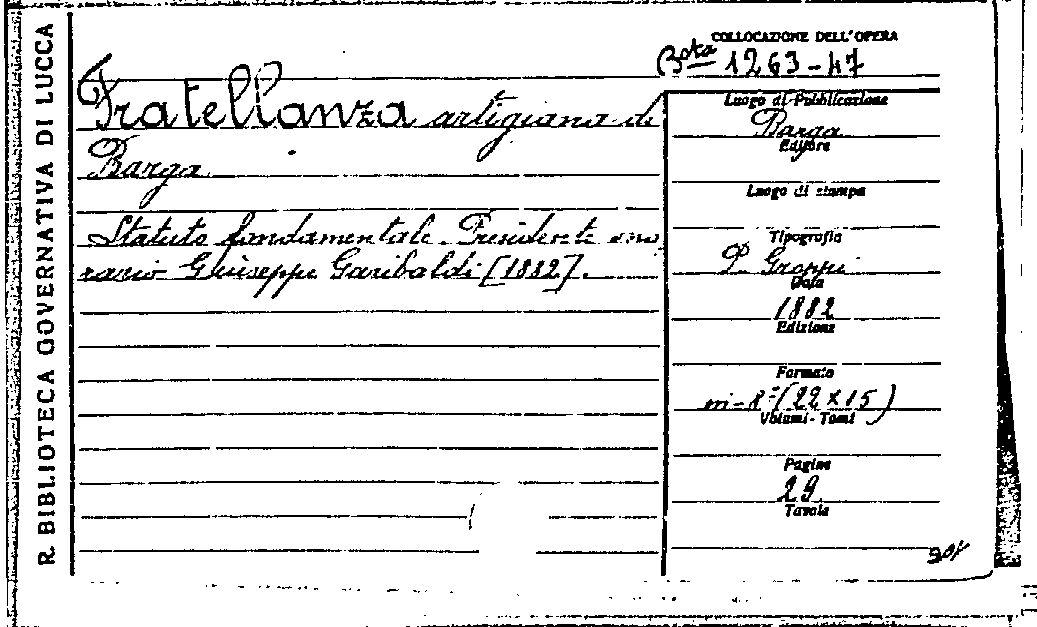 R. BIBLIOTECA GOVERNATIVA DI LUCCA
COLLOCAZIONE DELL'OPERA
Bta 1263-47
Fratellanza artigiana di
Barga
Statuto fondamentale. Presidente ono
rario Giuseppe Garibaldi [1882].
Luogo di Pubblicazione
Barga
Editore
Luogo di stampa
Tipografia
P. Groppi
Data
1882
Edizione
Formato
in-8° (22 x 15)
Volumi-Tomi
Pagine
29
Tavole